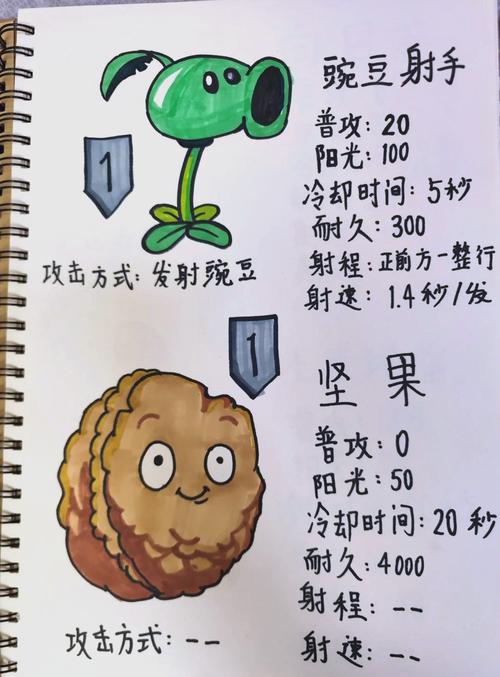 豌豆射手
1
普攻：20
阳光：100
冷却时间：5秒
耐久：300
射程：正前方一整行
攻击方式：发射豌豆
射速：1.4秒/发
1
坚果
普攻：0
阳光：50
冷却时间：20秒
耐久：4000
射程：--
攻击方式：--
射速：--